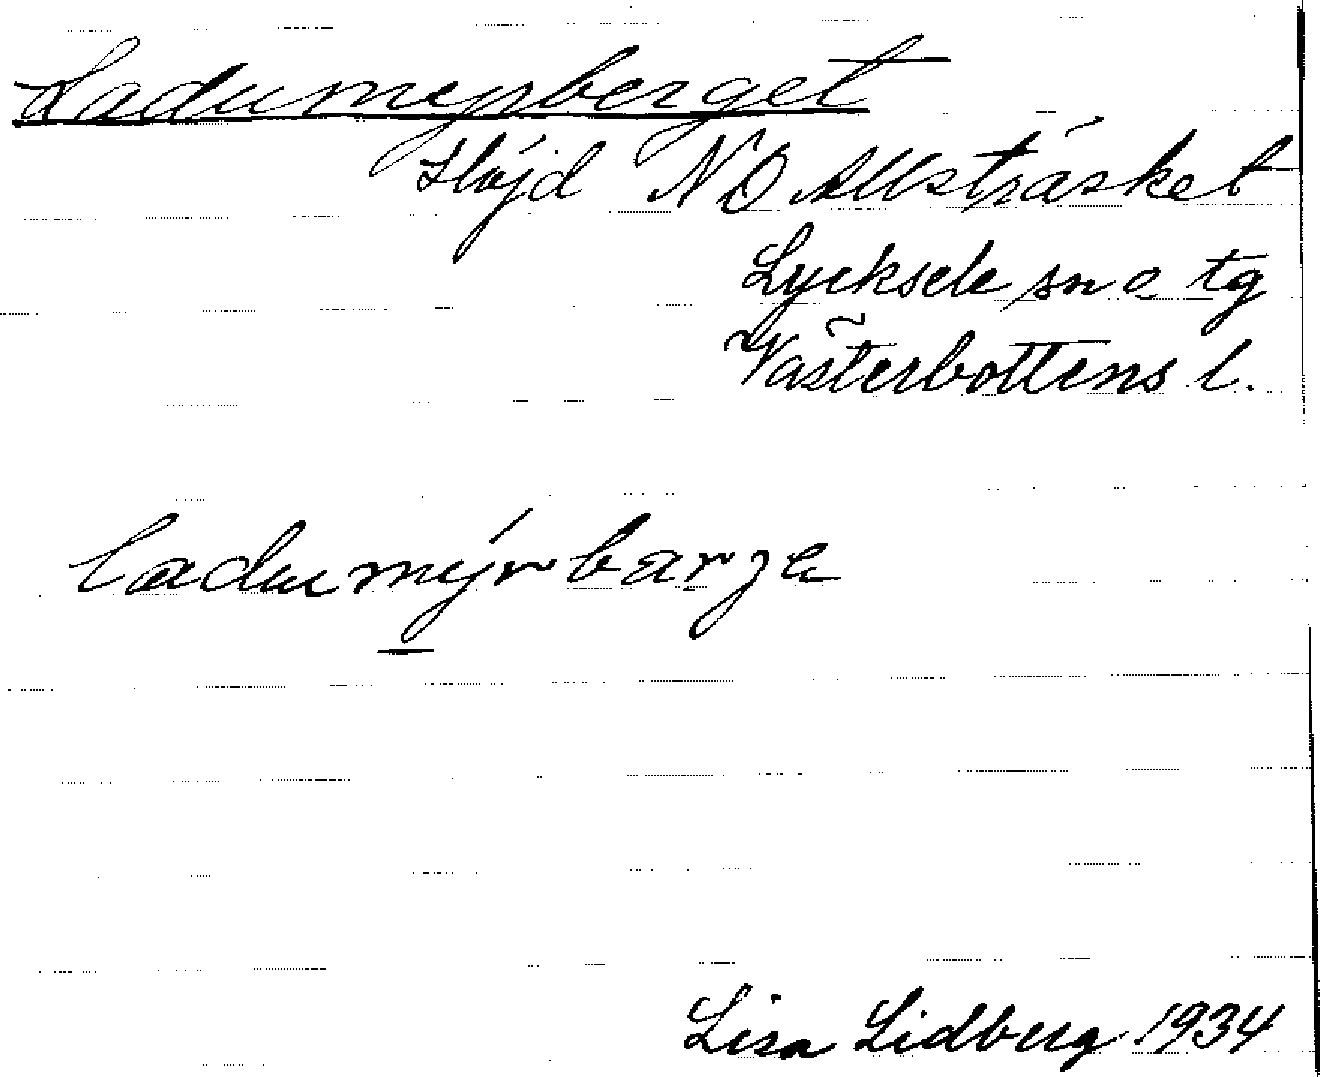 Ladumyrberget
Höjd NO Allsträsket
Lycksele sn o tg
Västerbottens l.
ladumýrbarge
Lisa Lidberg 1934